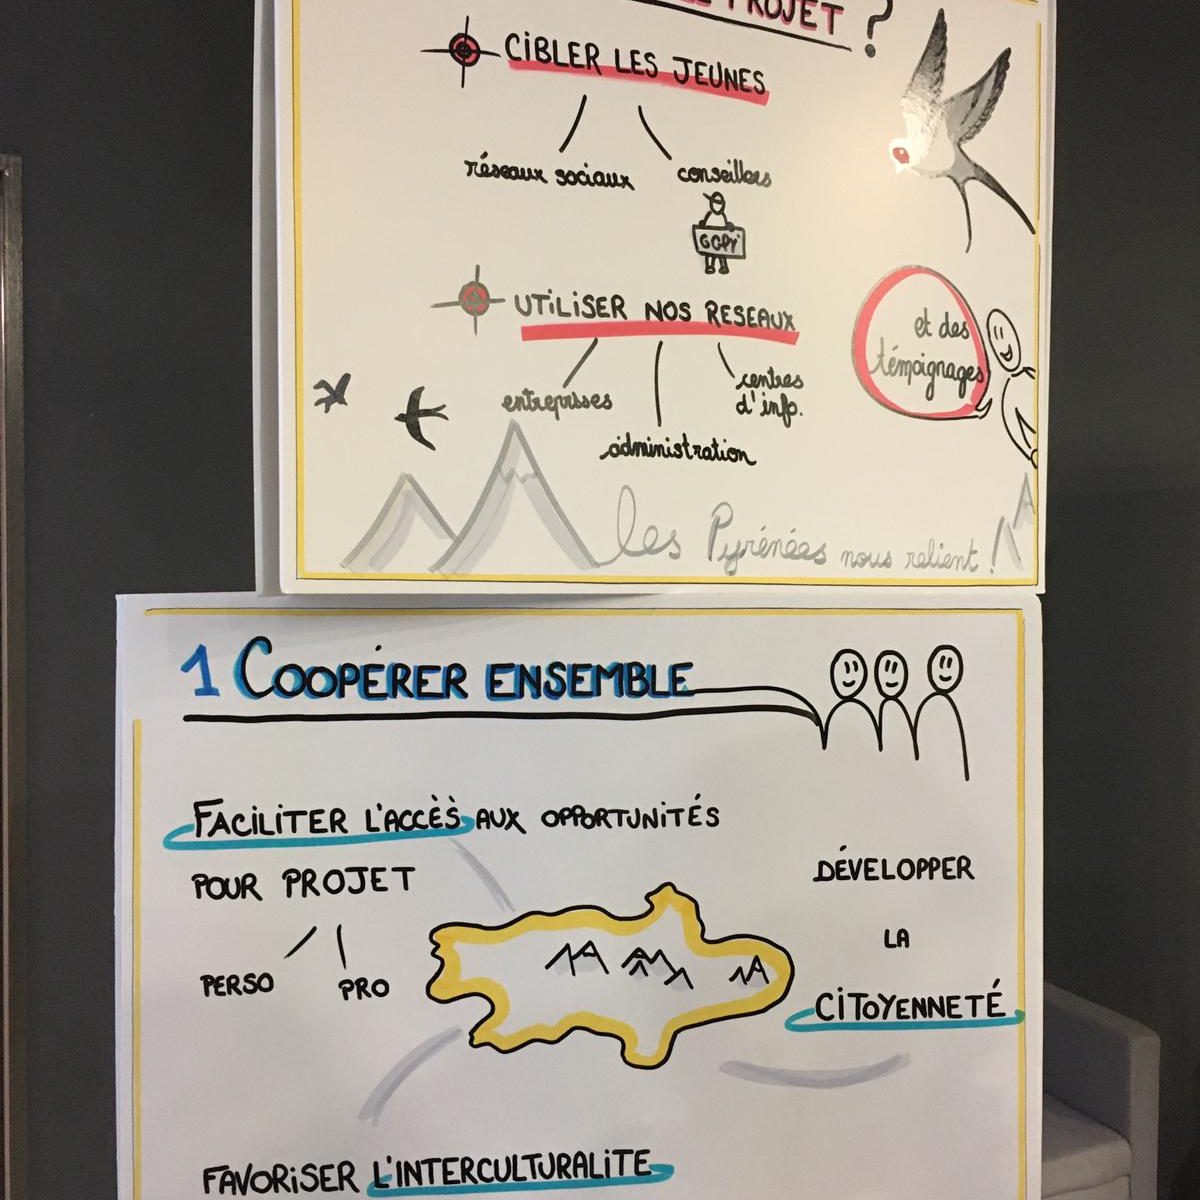 PROJET ?
CIBLER LES JEUNES
réseaux sociaux
conseillers
UTILISER NOS RESEAUX
entreprises
administration
centres
d'info.
et des
témoignages
les Pyrénées nous relient !
1 COOPÉRER ENSEMBLE
FACILITER L'ACCÈS AUX OPPORTUNITÉS
POUR PROJET
PERSO
PRO
DÉVELOPPER
LA
CITOYENNETÉ
FAVORISER L'INTERCULTURALITE